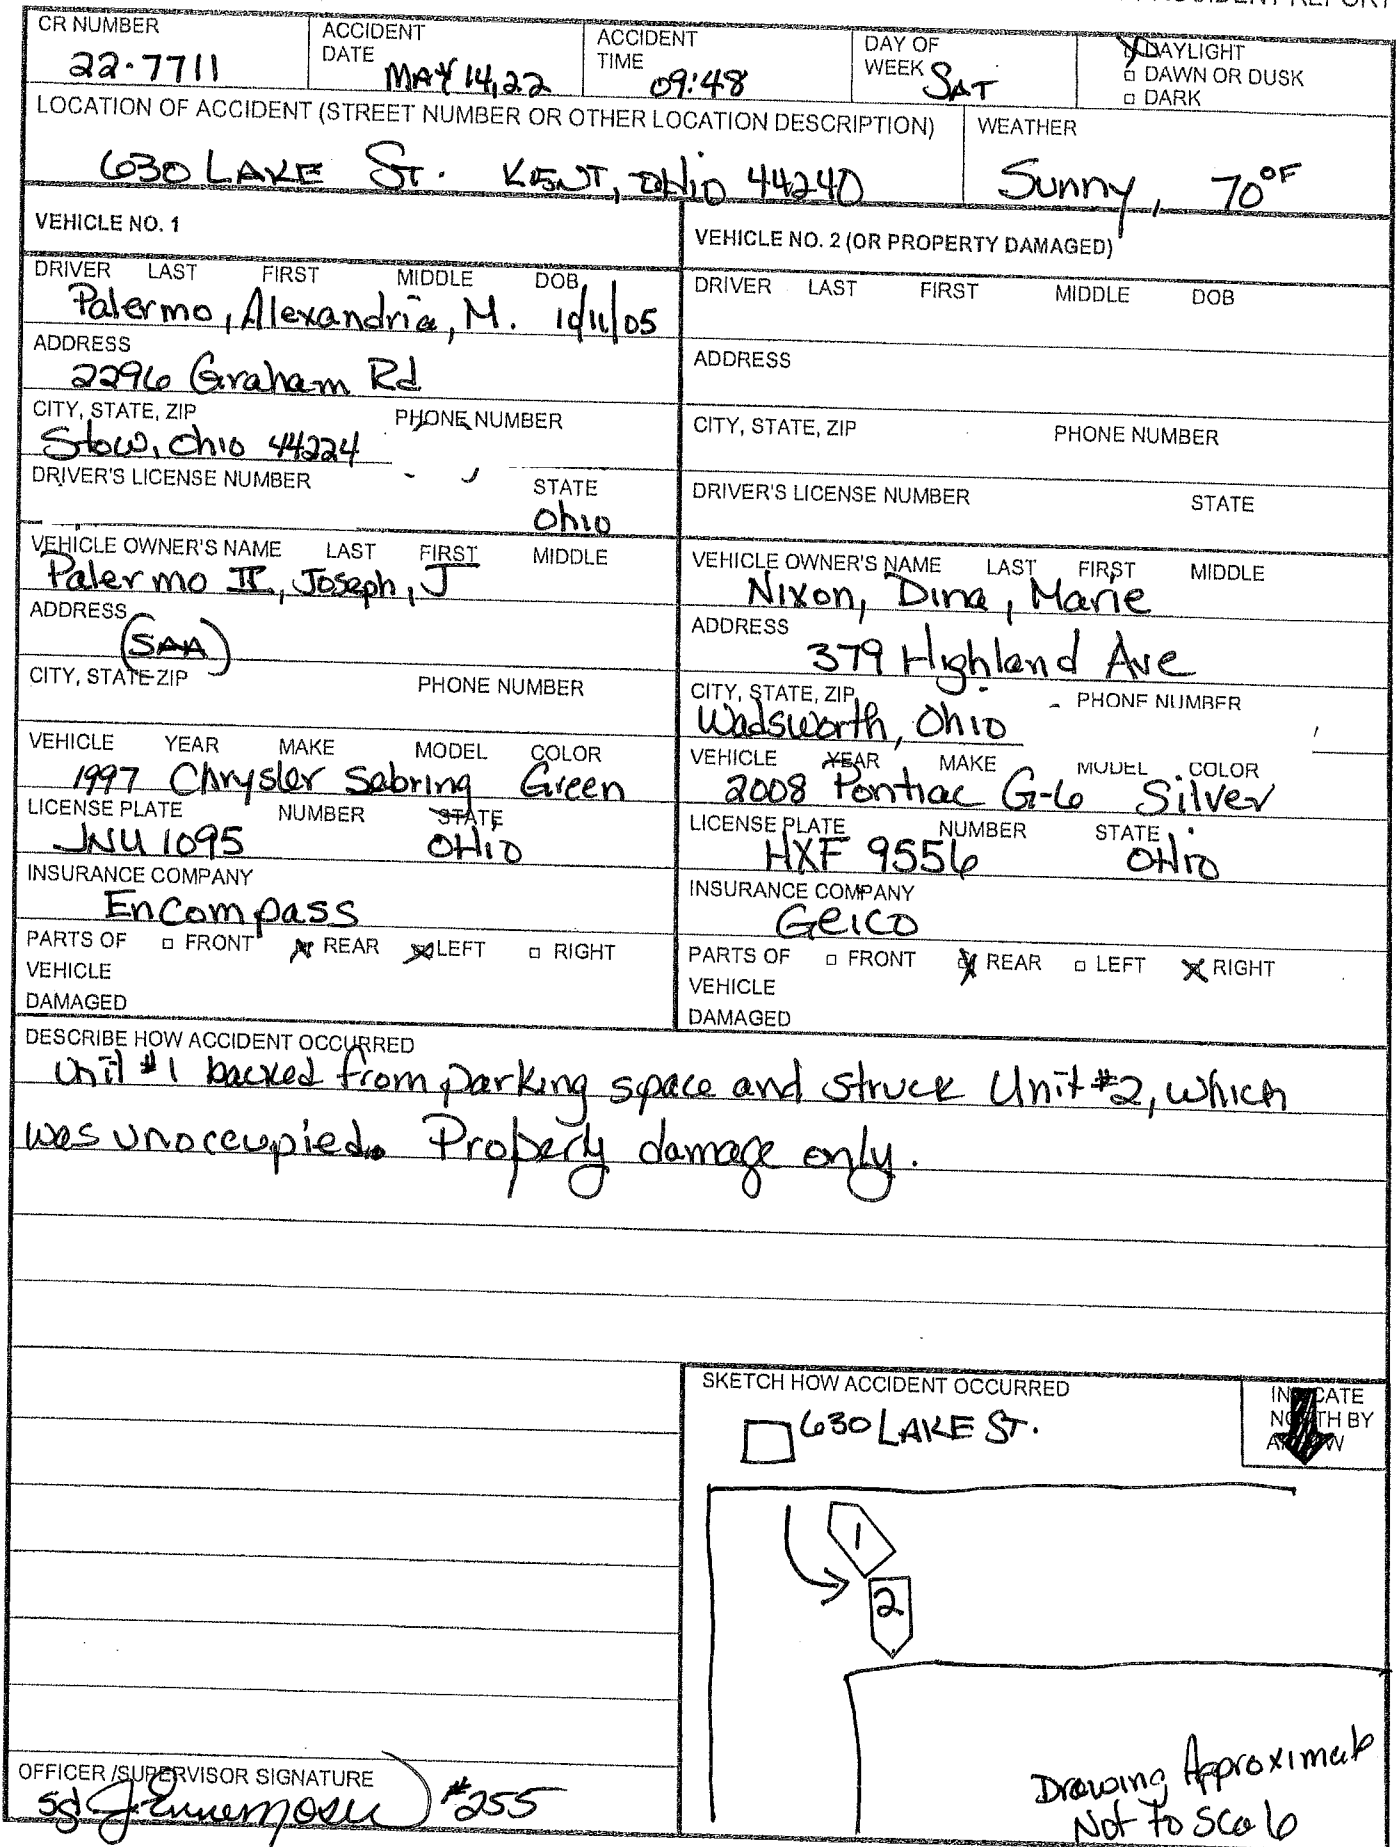 ACCIDENT REPORT
CR NUMBER ACCIDENT DATE ACCIDENT TIME DAY OF WEEK DAYLIGHT
22-7711 MAY 14, 22 09:48 SAT DAWN OR DUSK
DARK
LOCATION OF ACCIDENT (STREET NUMBER OR OTHER LOCATION DESCRIPTION) WEATHER
630 LAKE ST. KENT, OHIO 44240 Sunny, 70°F
VEHICLE NO. 1 VEHICLE NO. 2 (OR PROPERTY DAMAGED)
DRIVER LAST FIRST MIDDLE DOB
Palermo, Alexandria, M. 10/11/05
ADDRESS
2296 Graham Rd
CITY, STATE, ZIP PHONE NUMBER
Stow, Ohio 44224
DRIVER'S LICENSE NUMBER STATE
Ohio
VEHICLE OWNER'S NAME LAST FIRST MIDDLE
Palermo II, Joseph, J
ADDRESS
(SAA)
CITY, STATE ZIP PHONE NUMBER
VEHICLE YEAR MAKE MODEL COLOR
1997 Chrysler Sebring Green
LICENSE PLATE NUMBER STATE
JNU 1095 OHIO
INSURANCE COMPANY
Encompass
PARTS OF FRONT REAR LEFT RIGHT
VEHICLE
DAMAGED
DRIVER LAST FIRST MIDDLE DOB
ADDRESS
CITY, STATE, ZIP PHONE NUMBER
DRIVER'S LICENSE NUMBER STATE
VEHICLE OWNER'S NAME LAST FIRST MIDDLE
Nixon, Dina, Marie
ADDRESS
379 Highland Ave
CITY, STATE, ZIP PHONE NUMBER
Wadsworth, Ohio
VEHICLE YEAR MAKE MODEL COLOR
2008 Pontiac G-6 Silver
LICENSE PLATE NUMBER STATE
HXF 9556 OHIO
INSURANCE COMPANY
Geico
PARTS OF FRONT REAR LEFT RIGHT
VEHICLE
DAMAGED
DESCRIBE HOW ACCIDENT OCCURRED
Unit #1 backed from parking space and struck Unit #2, which
was unoccupied. Property damage only.
SKETCH HOW ACCIDENT OCCURRED
INDICATE
NORTH BY
ARROW
630 LAKE ST.
1
2
Drawing Approximate
Not to Scale
OFFICER /SUPERVISOR SIGNATURE
#255